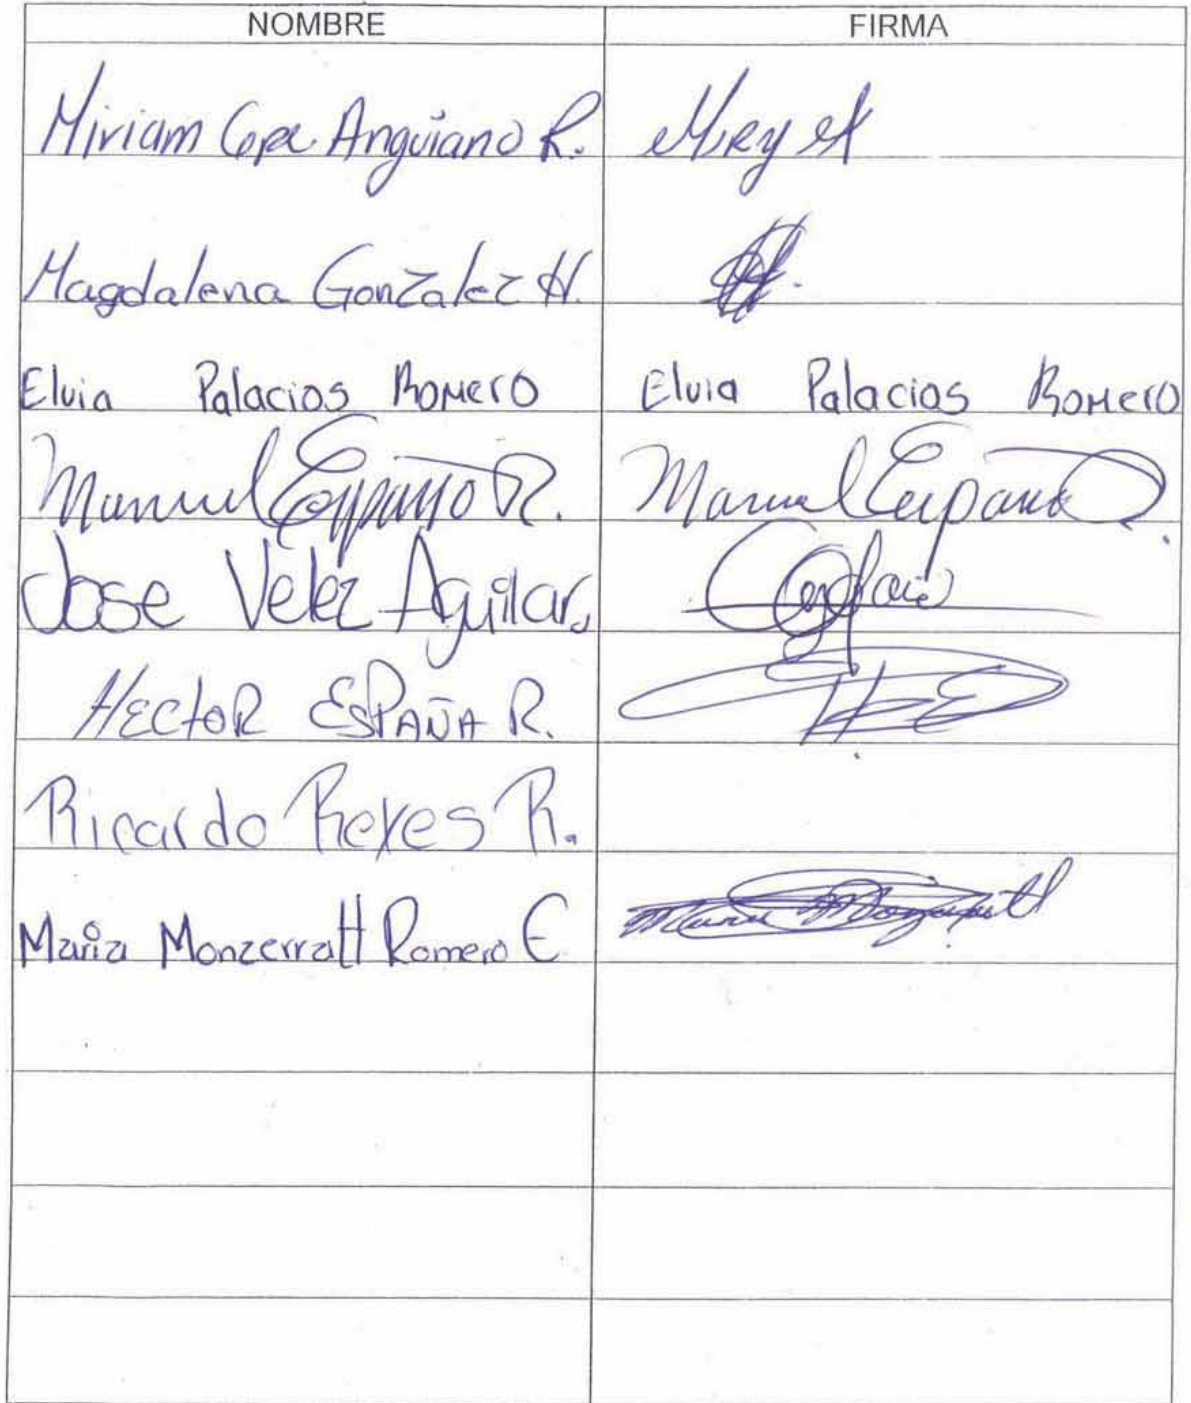 NOMBRE FIRMA
Miriam Gpe Anguiano R. Mary A
Magdalena Gonzalez H.
Elvia Palacios Romero Elvia Palacios Romero
Manuel España R. Manuel España R.
Jose Velez Aguilar
HECTOR ESPAÑA R.
Ricardo Reyes R.
Maria Monzerratt Romero E